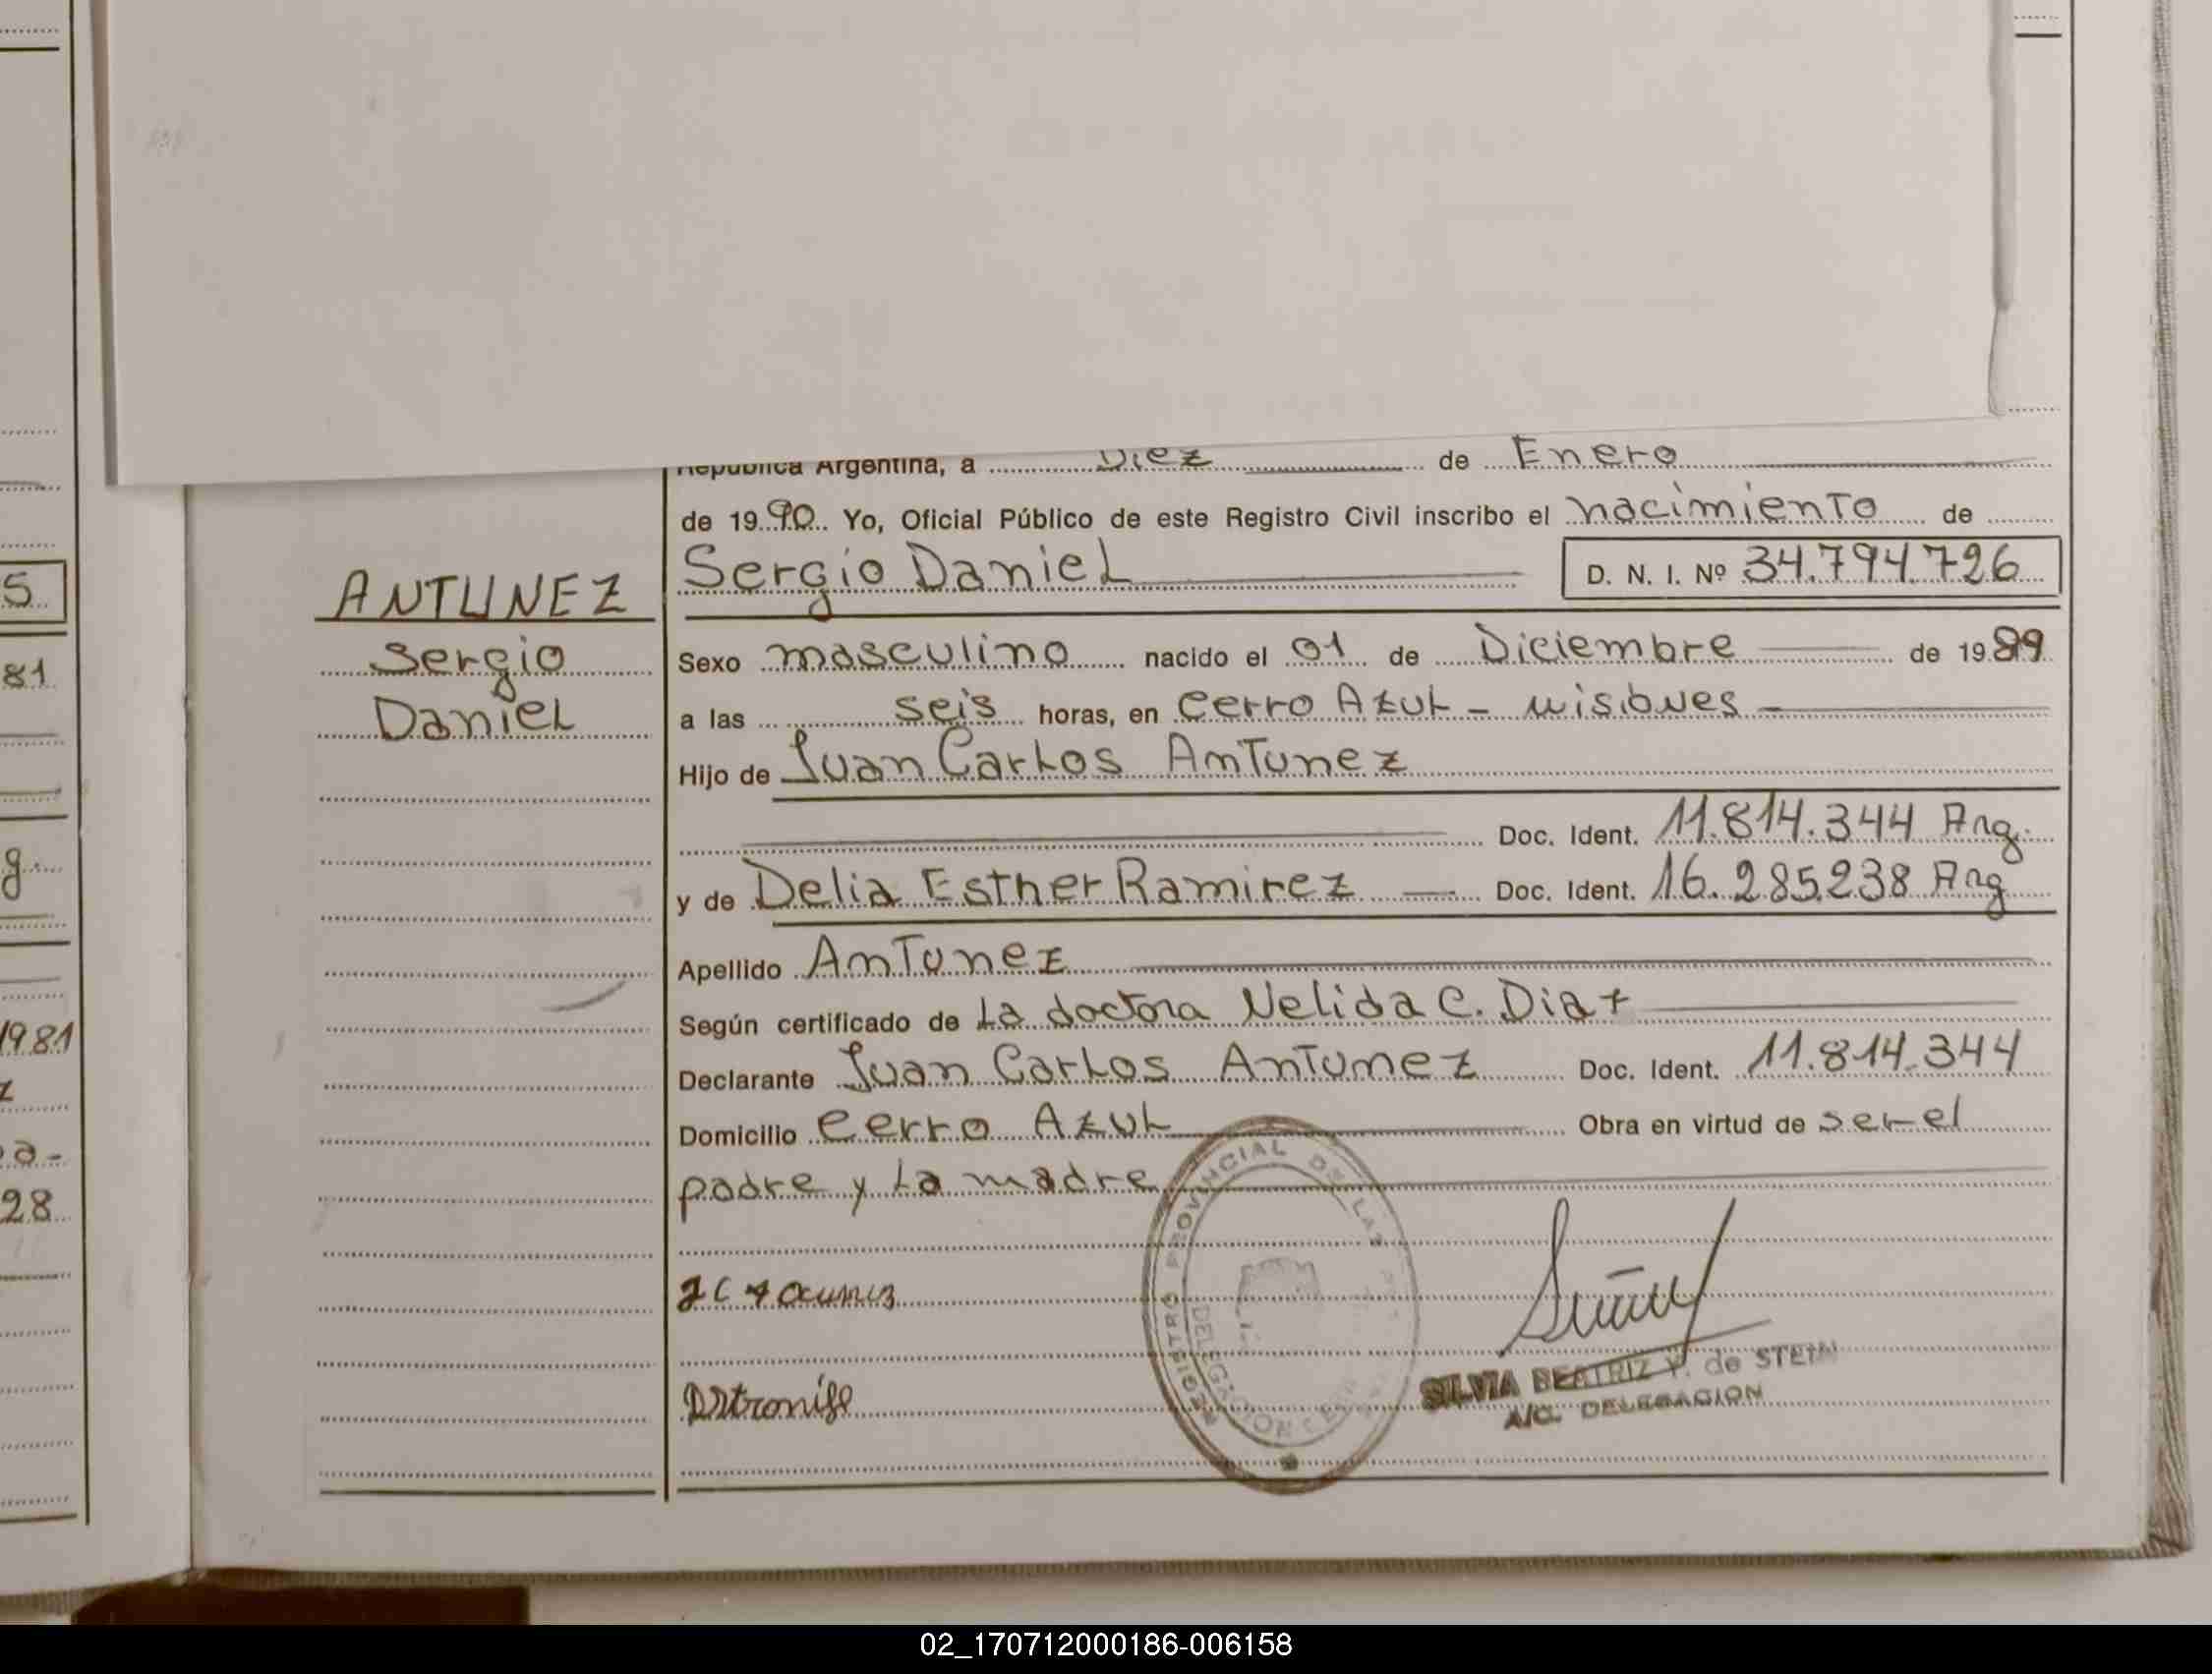 República Argentina, a Diez de Enero
de 1990 Yo, Oficial Público de este Registro Civil inscribo el nacimiento de
Sergio Daniel D. N. I. Nº 34.794.726
ANTUNEZ
Sergio
Daniel
Sexo masculino nacido el 01 de Diciembre de 1989
a las seis horas, en Cerro Azul - Misiones -
Hijo de Juan Carlos Antunez
Doc. Ident. 11.814.344 Arg.
y de Delia Esther Ramirez Doc. Ident. 16.285.238 Arg
Apellido Antunez
Según certificado de La doctora Nelida C. Diaz
Declarante Juan Carlos Antunez Doc. Ident. 11.814.344
Domicilio Cerro Azul Obra en virtud de ser el
padre y La madre
REGISTRO PROVINCIAL DE LAS
DELEGACION CERRO
SILVIA BEATRIZ Y. de STEIN
A/C. DELEGACION
5
81
g.
1981
z
a-
28
02_170712000186-006158